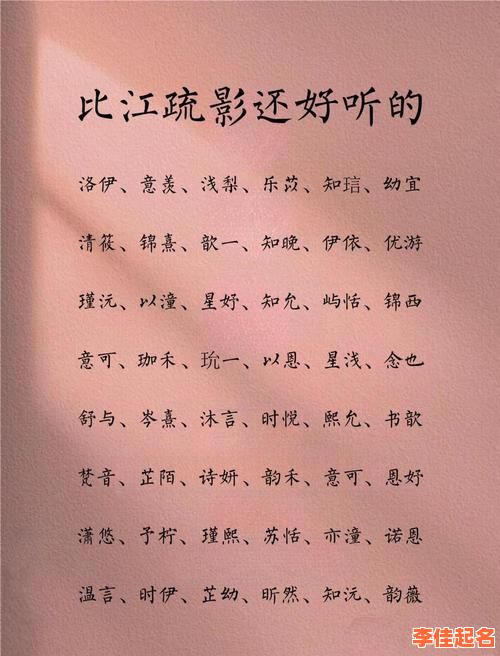 比江疏影还好听的
洛伊、意羡、浅梨、乐苡、知琂、幼宜
清筱、锦熹、歆一、知晚、伊依、优游
瑾沅、以潼、星妤、知允、屿恬、锦西
意可、珈禾、玧一、以恩、星浅、念也
舒与、岑熹、沐言、时悦、熙允、书歆
梵音、芷陌、诗妍、韵禾、意可、恩妤
潇悠、予柠、瑾熙、苏恬、亦潼、诺恩
温言、时伊、芷幼、昕然、知沅、韵薇
李佳起名